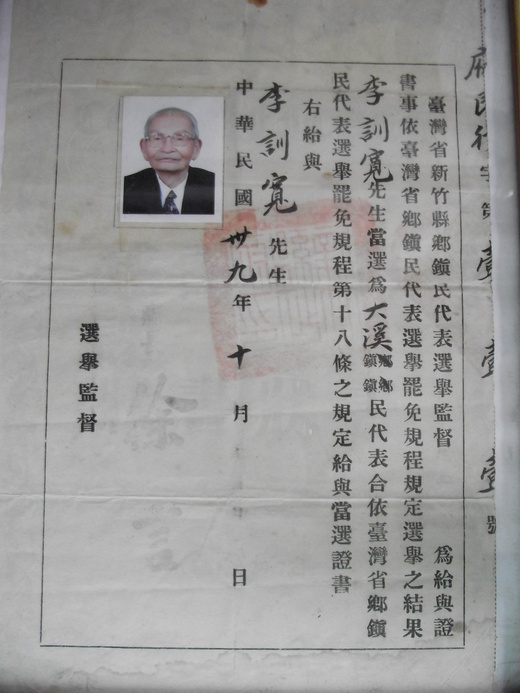 府民行字第壹壹壹號
臺灣省新竹縣鄉鎮民代表選舉監督 為給與證
書事依臺灣省鄉鎮民代表選舉罷免規程規定選舉之結果
李訓寬先生當選為大溪鄉鎮鄉鎮民代表合依臺灣省鄉鎮
民代表選舉罷免規程第十八條之規定給與當選證書
右給與
李訓寬先生
中華民國卅九年十月 日
選舉監督